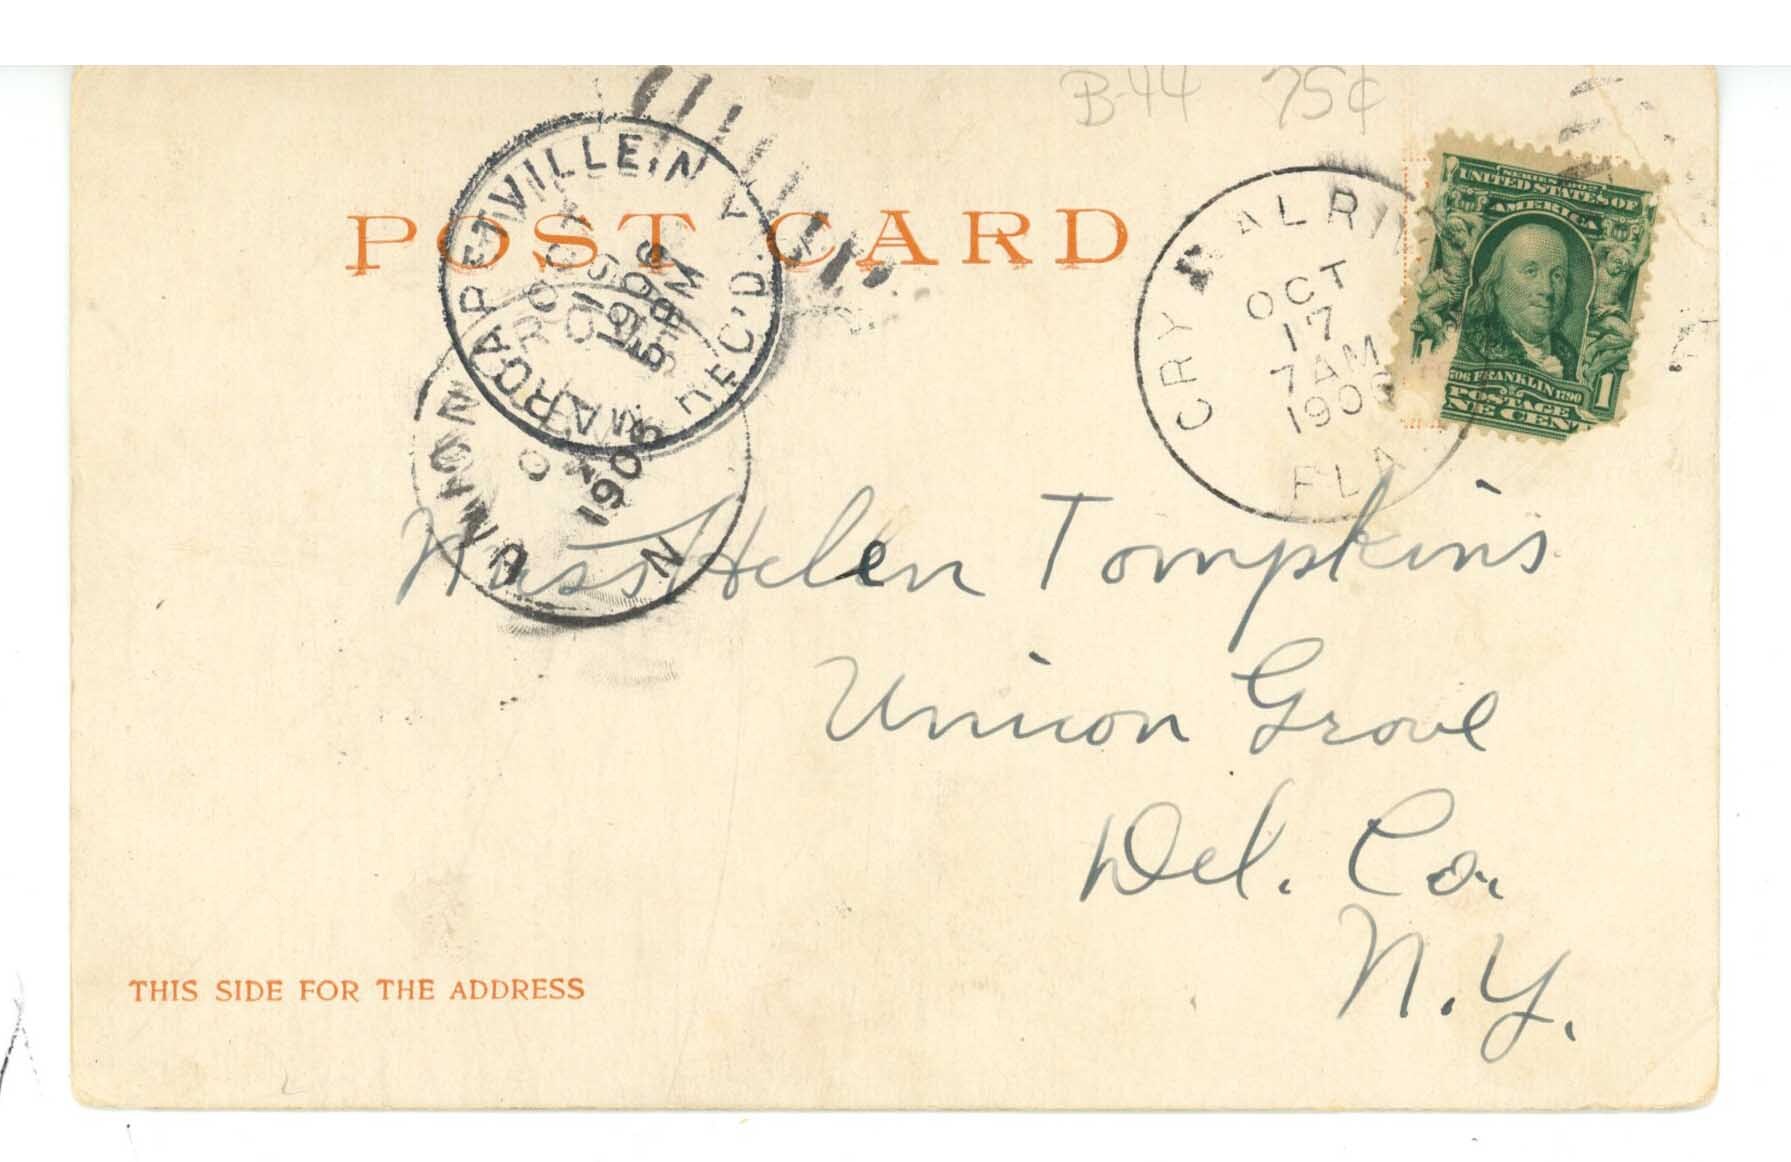 B-44 75¢
POST CARD
MARGARETVILLE, N.Y.
REC'D.
OCT
19
1906
5 PM
CRYSTAL RIV
OCT
17
7 AM
1906
FLA.
SERIES 1902
UNITED STATES OF
AMERICA
1706 FRANKLIN 1790
POSTAGE
ONE CENT
1
UNION
1906
N
Miss Helen Tompkins
Union Grove
Del. Co.
N.Y.
THIS SIDE FOR THE ADDRESS